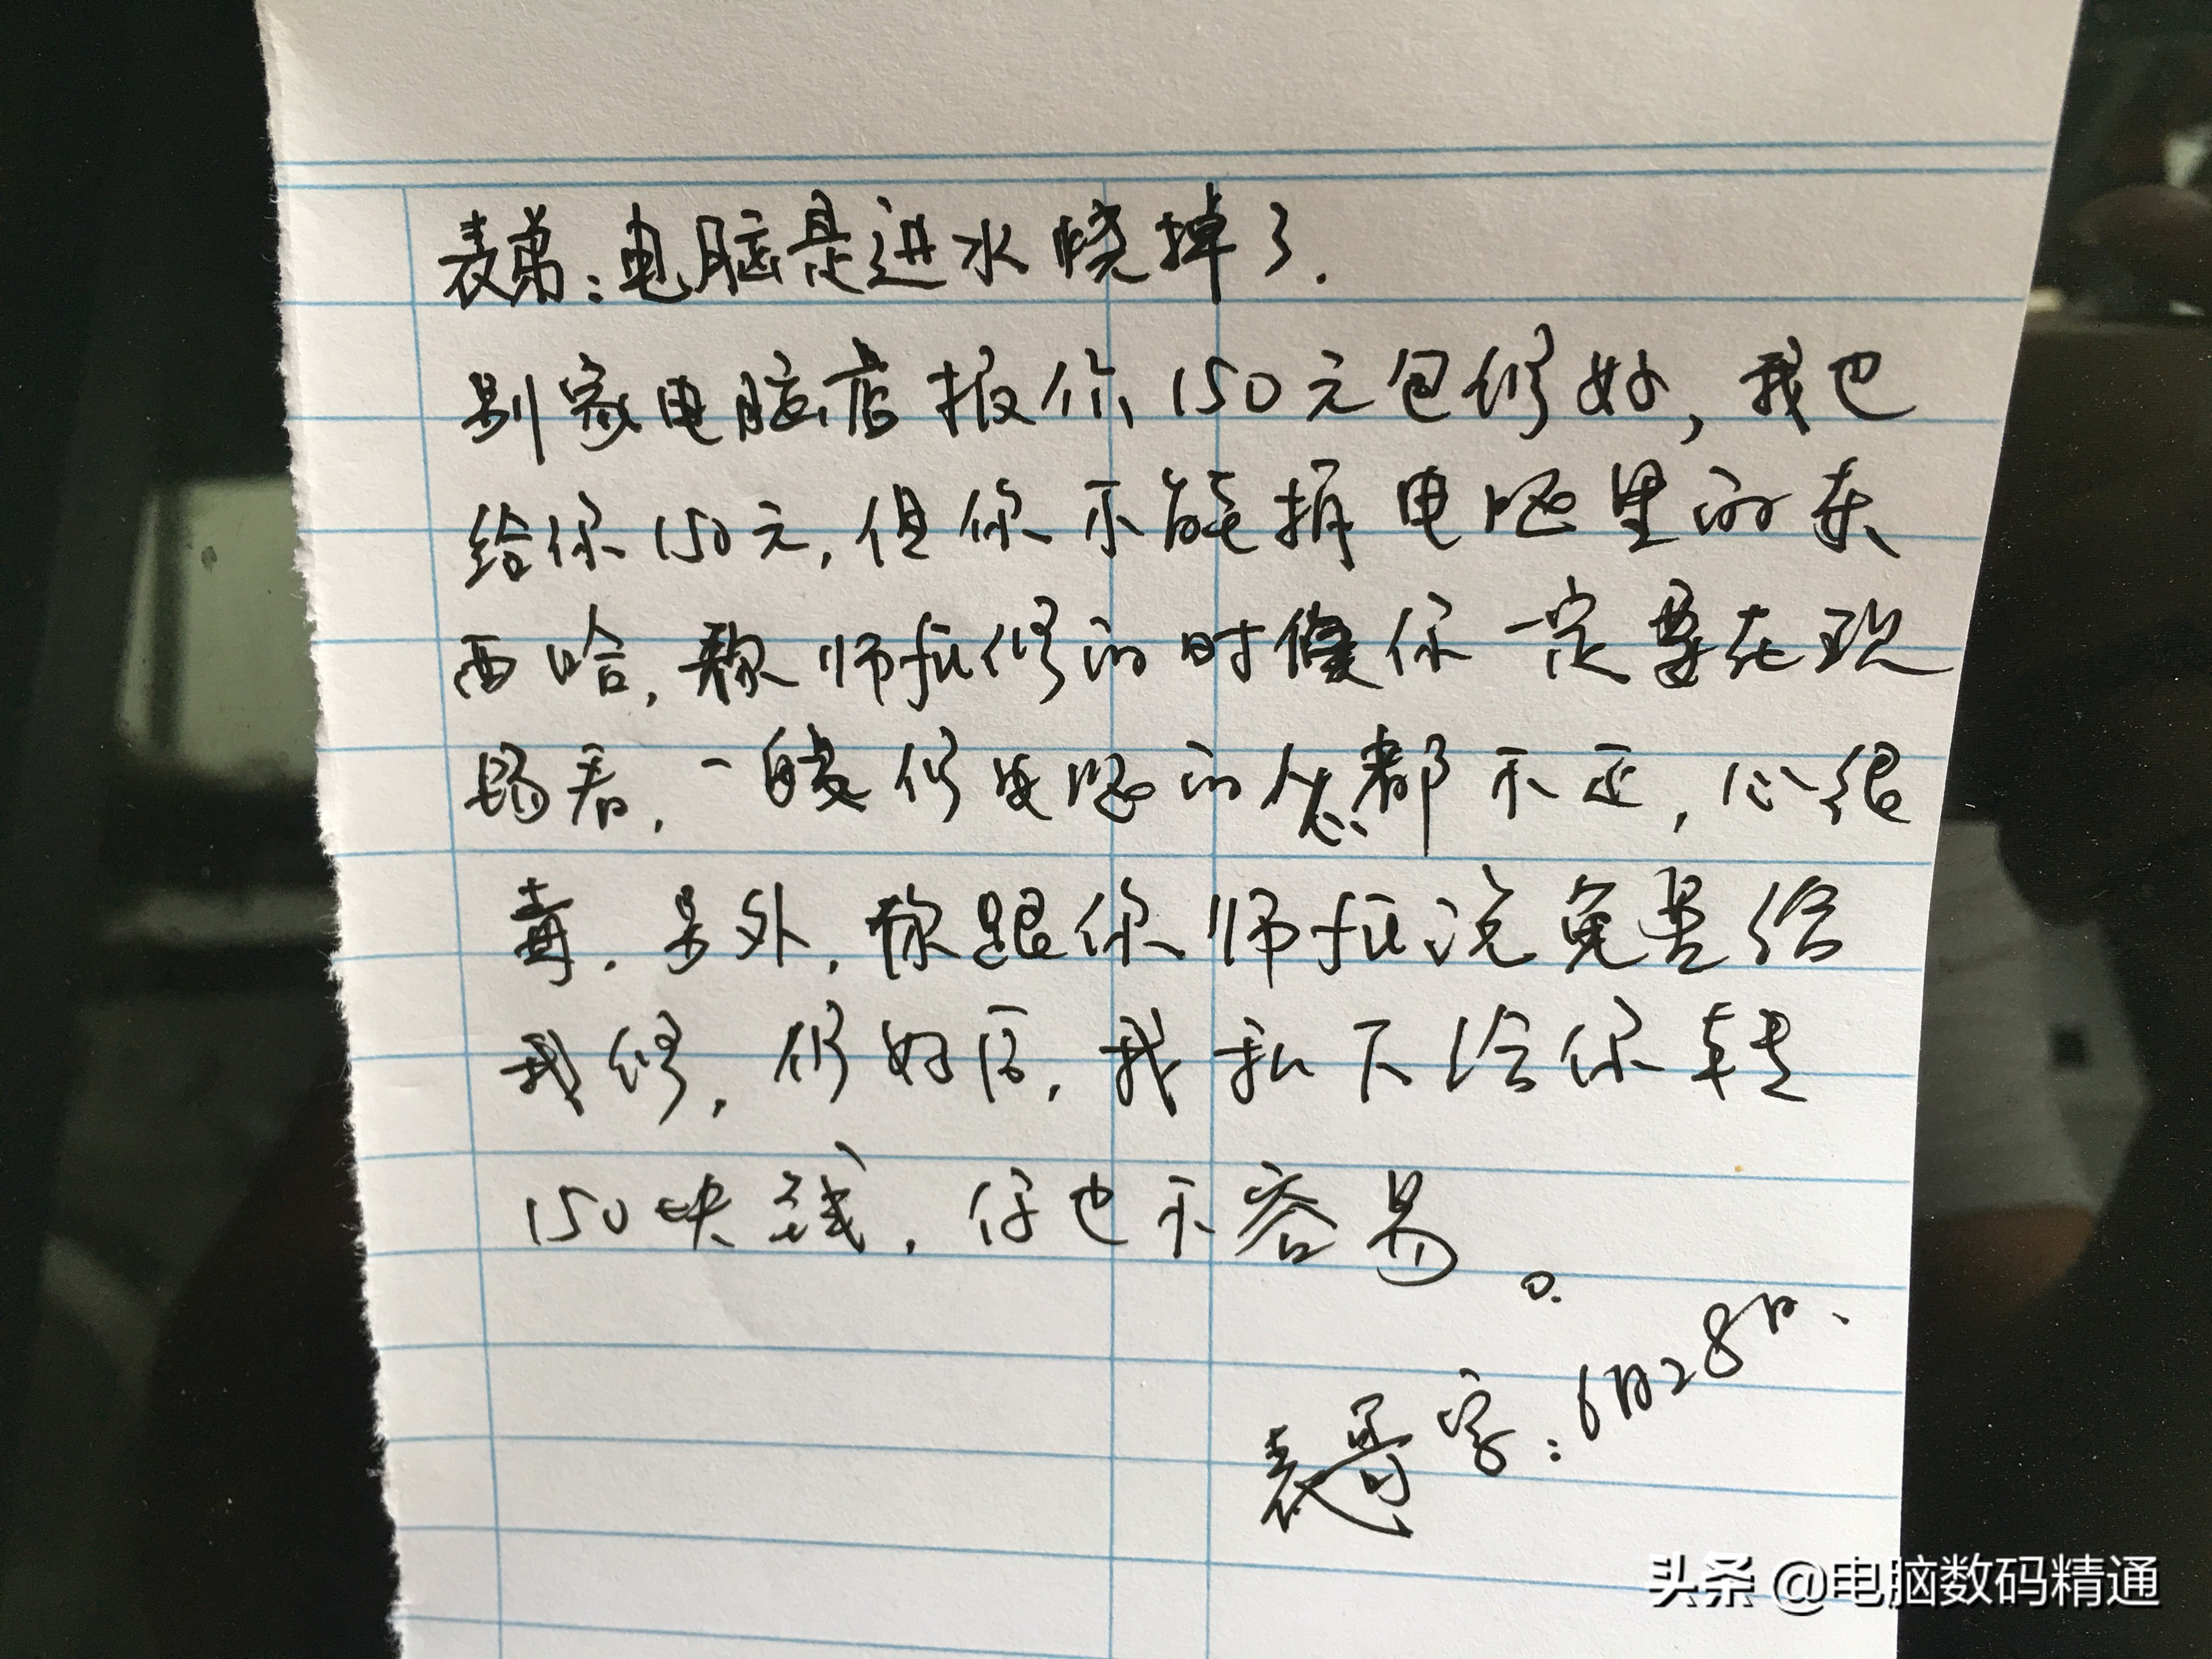 表弟：电脑是进水烧掉了.
别家电脑店报价150元包修好，我也
给你150元，但你不能拆电脑里的东
西哈，你师傅修的时候你一定要在现
场看，一般修电脑的心都不正，心很
毒．另外，你跟你师傅说免费给
我修，修好后，我私下给你转
150块钱，你也不容易。
表哥字：6月28日、
头条 @电脑数码精通